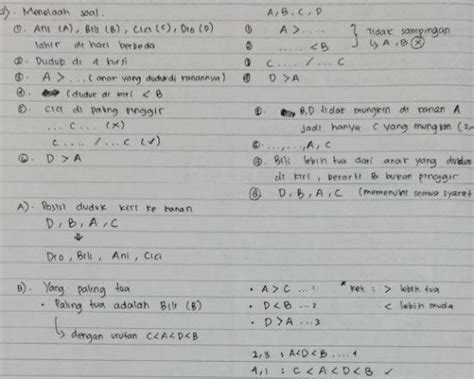 2). Menelaah soal.
①. Ani (A), Bili (B), Cici (C), Dio (D)
lahir di hari berbeda
②. Duduk di 4 kursi
③. A > ... (anak yang duduk di kanannya)
④. (duduk di kiri < B
⑤. Cici di paling pinggir
... C ... (x)
C .... / ... C (✓)
⑥. D > A
A, B, C, D
① A > ....
② ..... < B
} Tidak sampingan
↳ A, B ⓧ
③ C ..... / ... C
④ D > A
B,D tidak mungkin di kanan A
jadi hanya C yang mungkin
..., ..., A, C
Bili lebih tua dari anak yang duduk
di kiri, berarti B bukan pinggir
⑧. D, B, A, C (memenuhi semua syarat
A). Posisi duduk kiri ke kanan
D, B, A, C
↓
Dio, Bili, Ani, Cici
B). Yang paling tua
• Paling tua adalah Bili (B)
↳ dengan urutan C<A<D<B
• A > C ... 1
• D < B ... 2
• D > A ... 3
* ket : > lebih tua
< lebih muda
2,3 : A<D<B .... 4
4,1 : C < A < D < B ✓